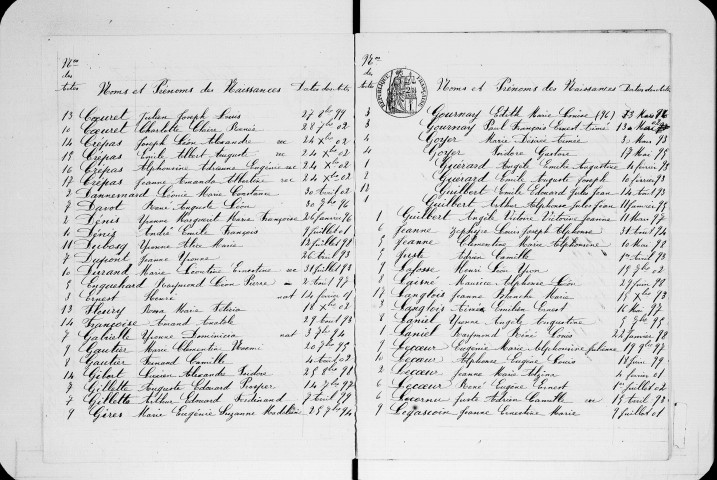 Nos
des
actes
Noms et Prénoms des Naissances
Dates des Actes
13 Coeuret Julien Joseph Louis 27 9bre 99
10 Coeuret Charlotte Claire Renée 28 7bre 02
14 Crépas Joseph Léon Alexandre rec 24 Xbre 02
19 Crépas Emile Albert Auguste rec 24 Xbre 02
16 Crépas Alphonsine Adrienne Eugénie rec 24 Xbre 02
17 Crépas Jeanne Amanda Albertine rec 24 Xbre 02
2 Dannemard Léonie Marie Constance 30 Avril 02
7 Davot René Auguste Léon 30 7bre 96
2 Dénis Yvonne Marguerite Marie Françoise 26 janvier 96
10 Dénis André Emile François 9 juillet 01
11 Dubosq Yvonne Alice Marie 12 juillet 98
7 Dupont Jeanne Yvonne 26 Avril 93
10 Durand Marie Léontine Ernestine rec 31 juillet 93
5 Enguehard Raymond Léon Pierre 2 Avril 97
3 Ernest Henri nat 14 février 01
13 Fleury Rosa Marie 18 Xbre 02
14 Françoise Amand Anatole 29 Avril 93
7 Gabrielle Yvonne Dominica nat 3 7bre 94
9 Gautier Marie Clémentine Noémi 20 7bre 95
1 Gautier Fernand Camille 4 Avril 02
14 Gilart Lucien Alexandre Isidore 25 9bre 98
7 Gillette Auguste Edouard Prosper 14 7bre 97
7 Gillette Arthur Edmond Ferdinand 7 Avril 99
9 Gires Marie Eugénie Suzanne Madeleine 25 7bre 94
Nos
des
actes
Noms et Prénoms des Naissances
Dates des Actes
RÉPUBLIQUE FRANÇAISE
3 Gournay Edith Marie Louise (96) 23 Mars 96
Gournay Paul François Ernest Aimé 13 Mai
4 Goyer Marie Désirée Aimée 5 Mars 93
4 Goyer Isidore Gustave 17 Mai 95
2 Guérard Angèle Emile Augustine 4 février 93
2 Guérard Emile Auguste Joseph 10 février 97
12 Guilbert Emile Edouard Jules Jean 14 Avril 93
1 Guilbert Arthur Alphonse Jules Jean 11 janvier 95
1 Guilbert Angèle Victoire Victorine Jeanne 11 Mars 97
6 Jeanne Zéphyre Louis Joseph Alphonse 31 Août 94
5 Jeanne Clémentine Marie Alphonsine 10 Mai 98
5 Juste Adrien Camille 1er Avril 93
9 Lafosse Henri Léon Yvon 19 7bre 02
6 Laisné Maurice Alphonse Léon 27 juin 98
17 Langlois Jeanne Blanche Marie 15 Xbre 93
3 Langlois Aimé Emilien Ernest 16 Mai 97
8 Laniel Yvonne Angèle Augustine 5 7bre 95
1 Laniel Raymond René Louis 22 janvier 98
9 Lecoeur Eugénie Marie Alphonsine Juliene 19 9bre 94
10 Lecoeur Alphonse Eugène Louis 18 juin 99
2 Lecoeur Jeanne Marie Alzina 4 février 01
6 Lecoeur René Eugène Ernest 1er juillet 02
6 Lecornu Juste Adrien Camille rec 15 Avril 93
9 Legascoin Jeanne Ernestine Marie 9 juillet 01